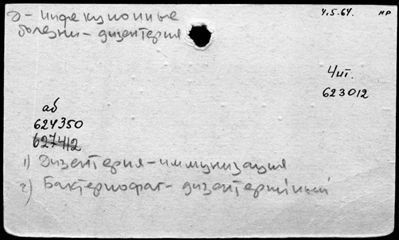 д - Инфекционные
болезни - дизентерия
4.5.64. НР
4 ит.
623012
аб
624350
627412
1) Дизентерия - иммунизация
2) Бактериофаг - дизентерийный